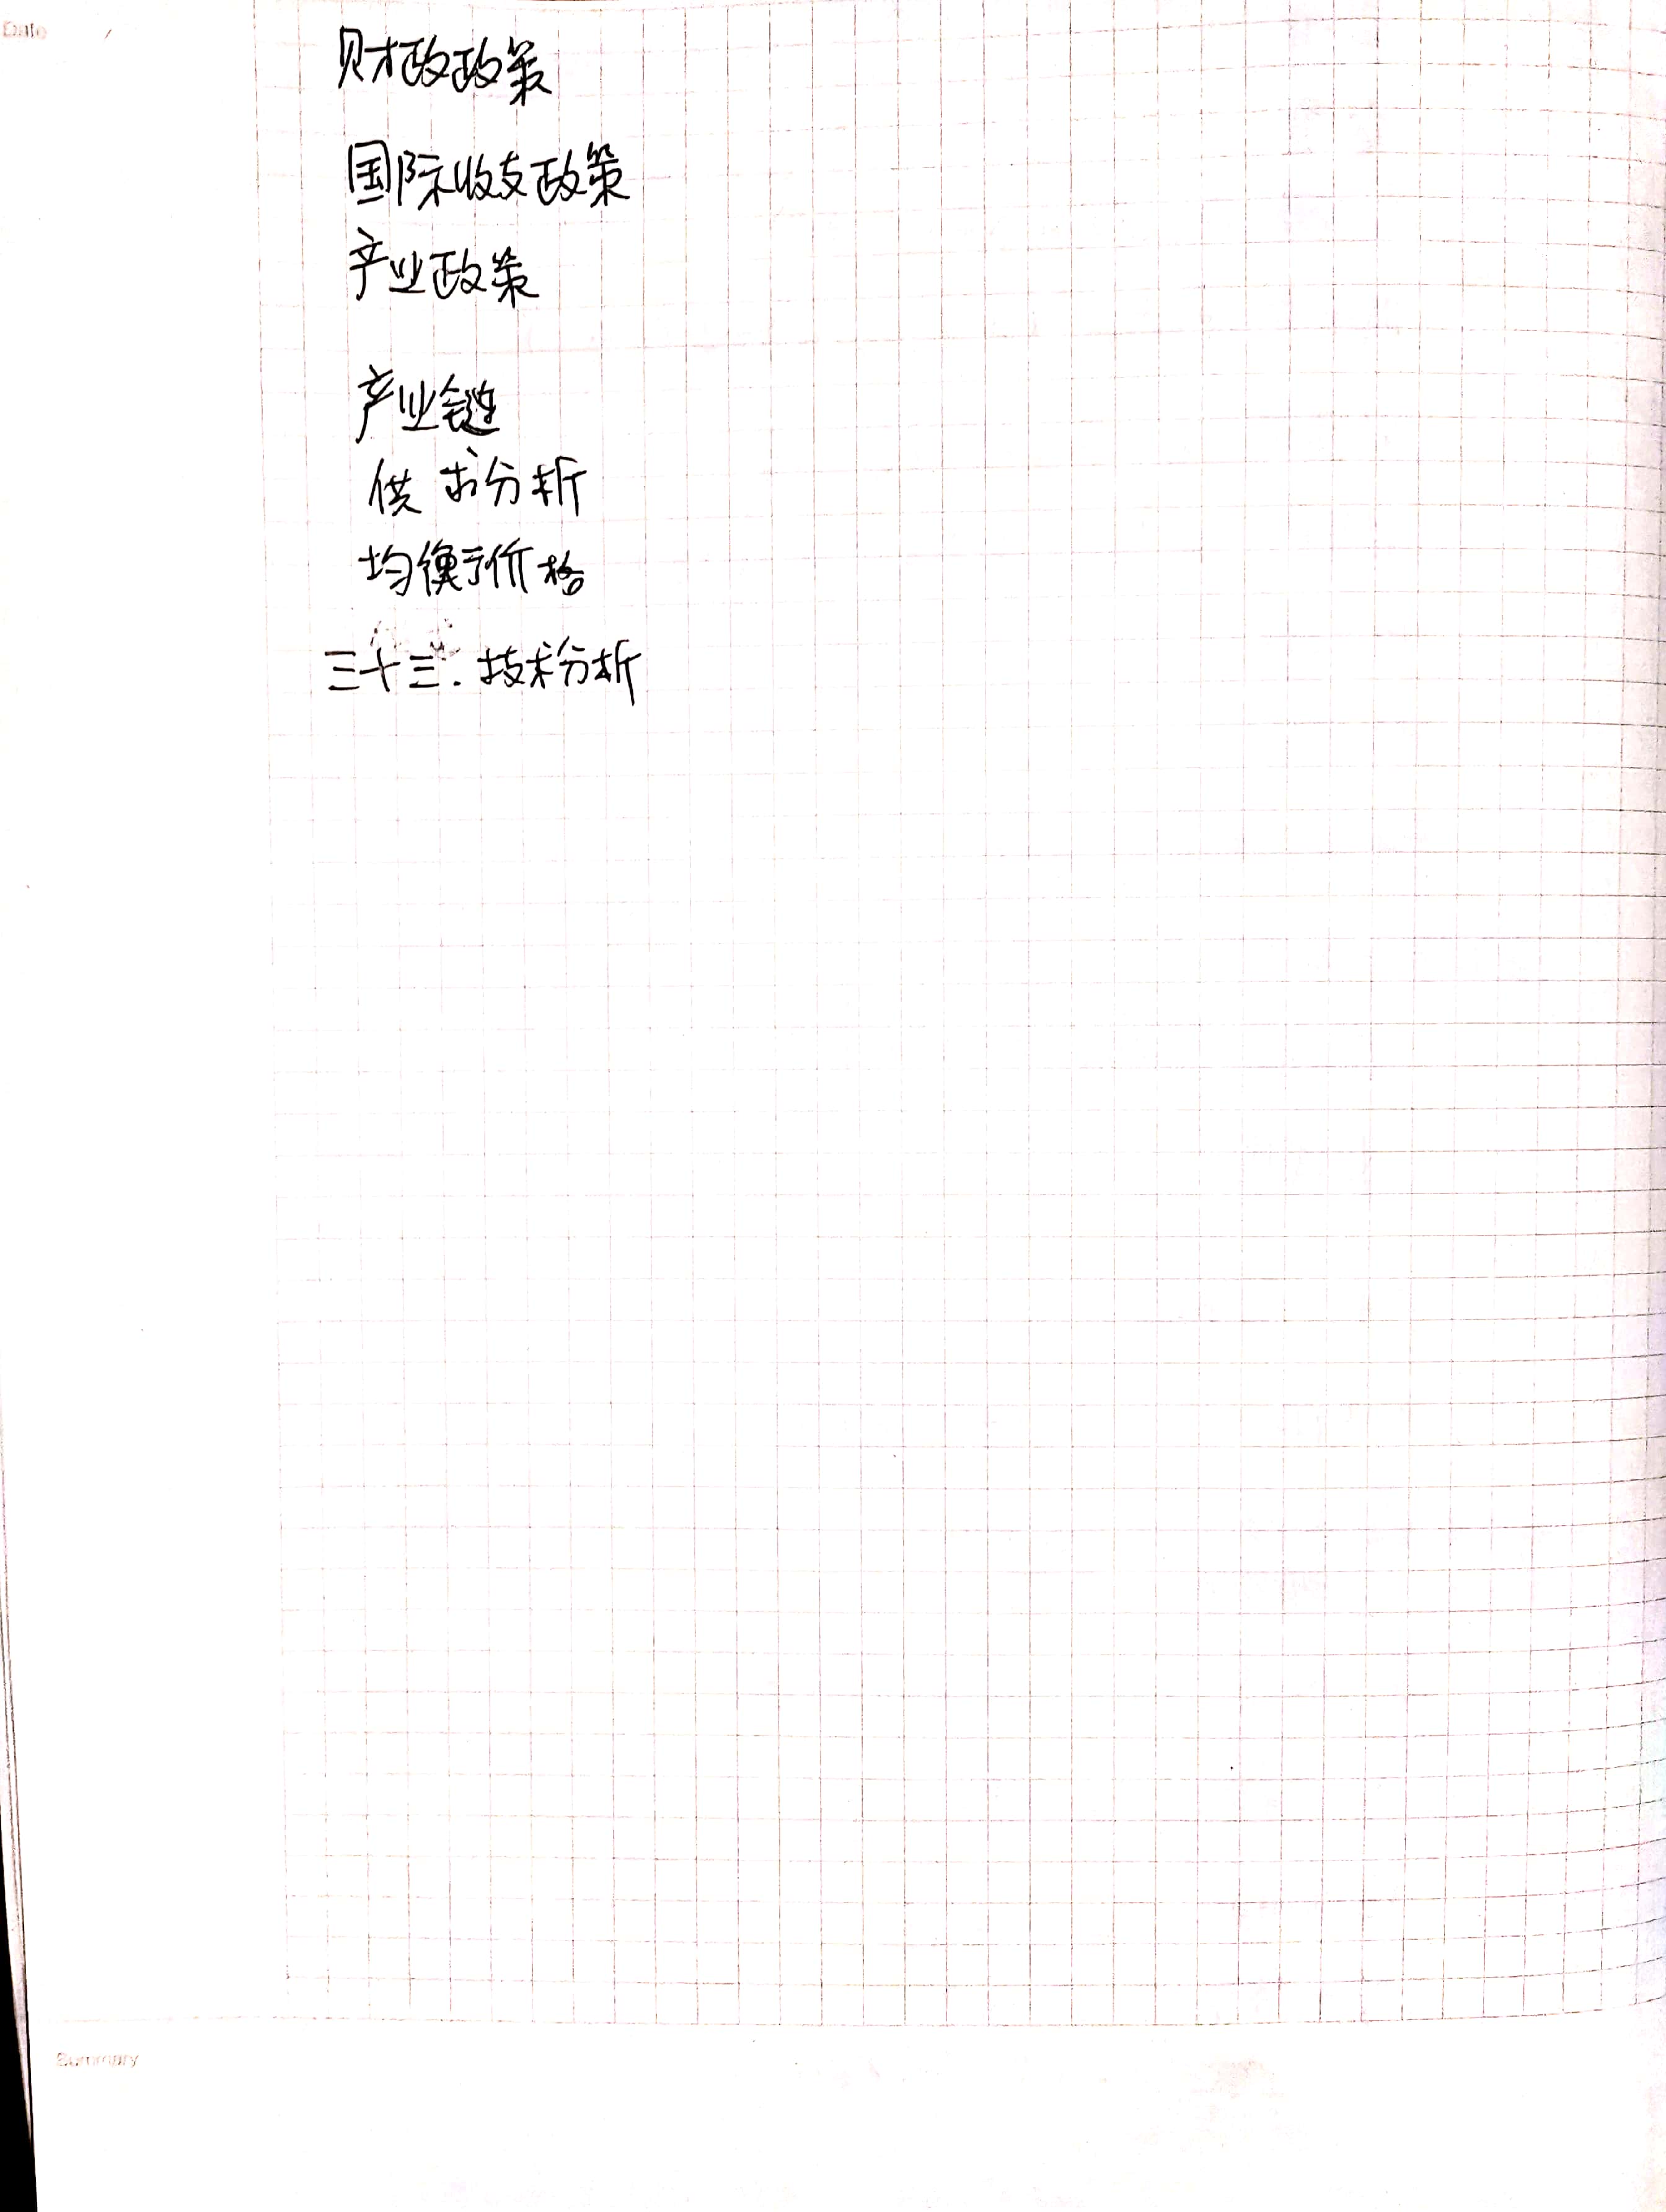 Date
财政政策
国际收支政策
产业政策
产业链
供求分析
均衡价格
三十三.技术分析
Summary